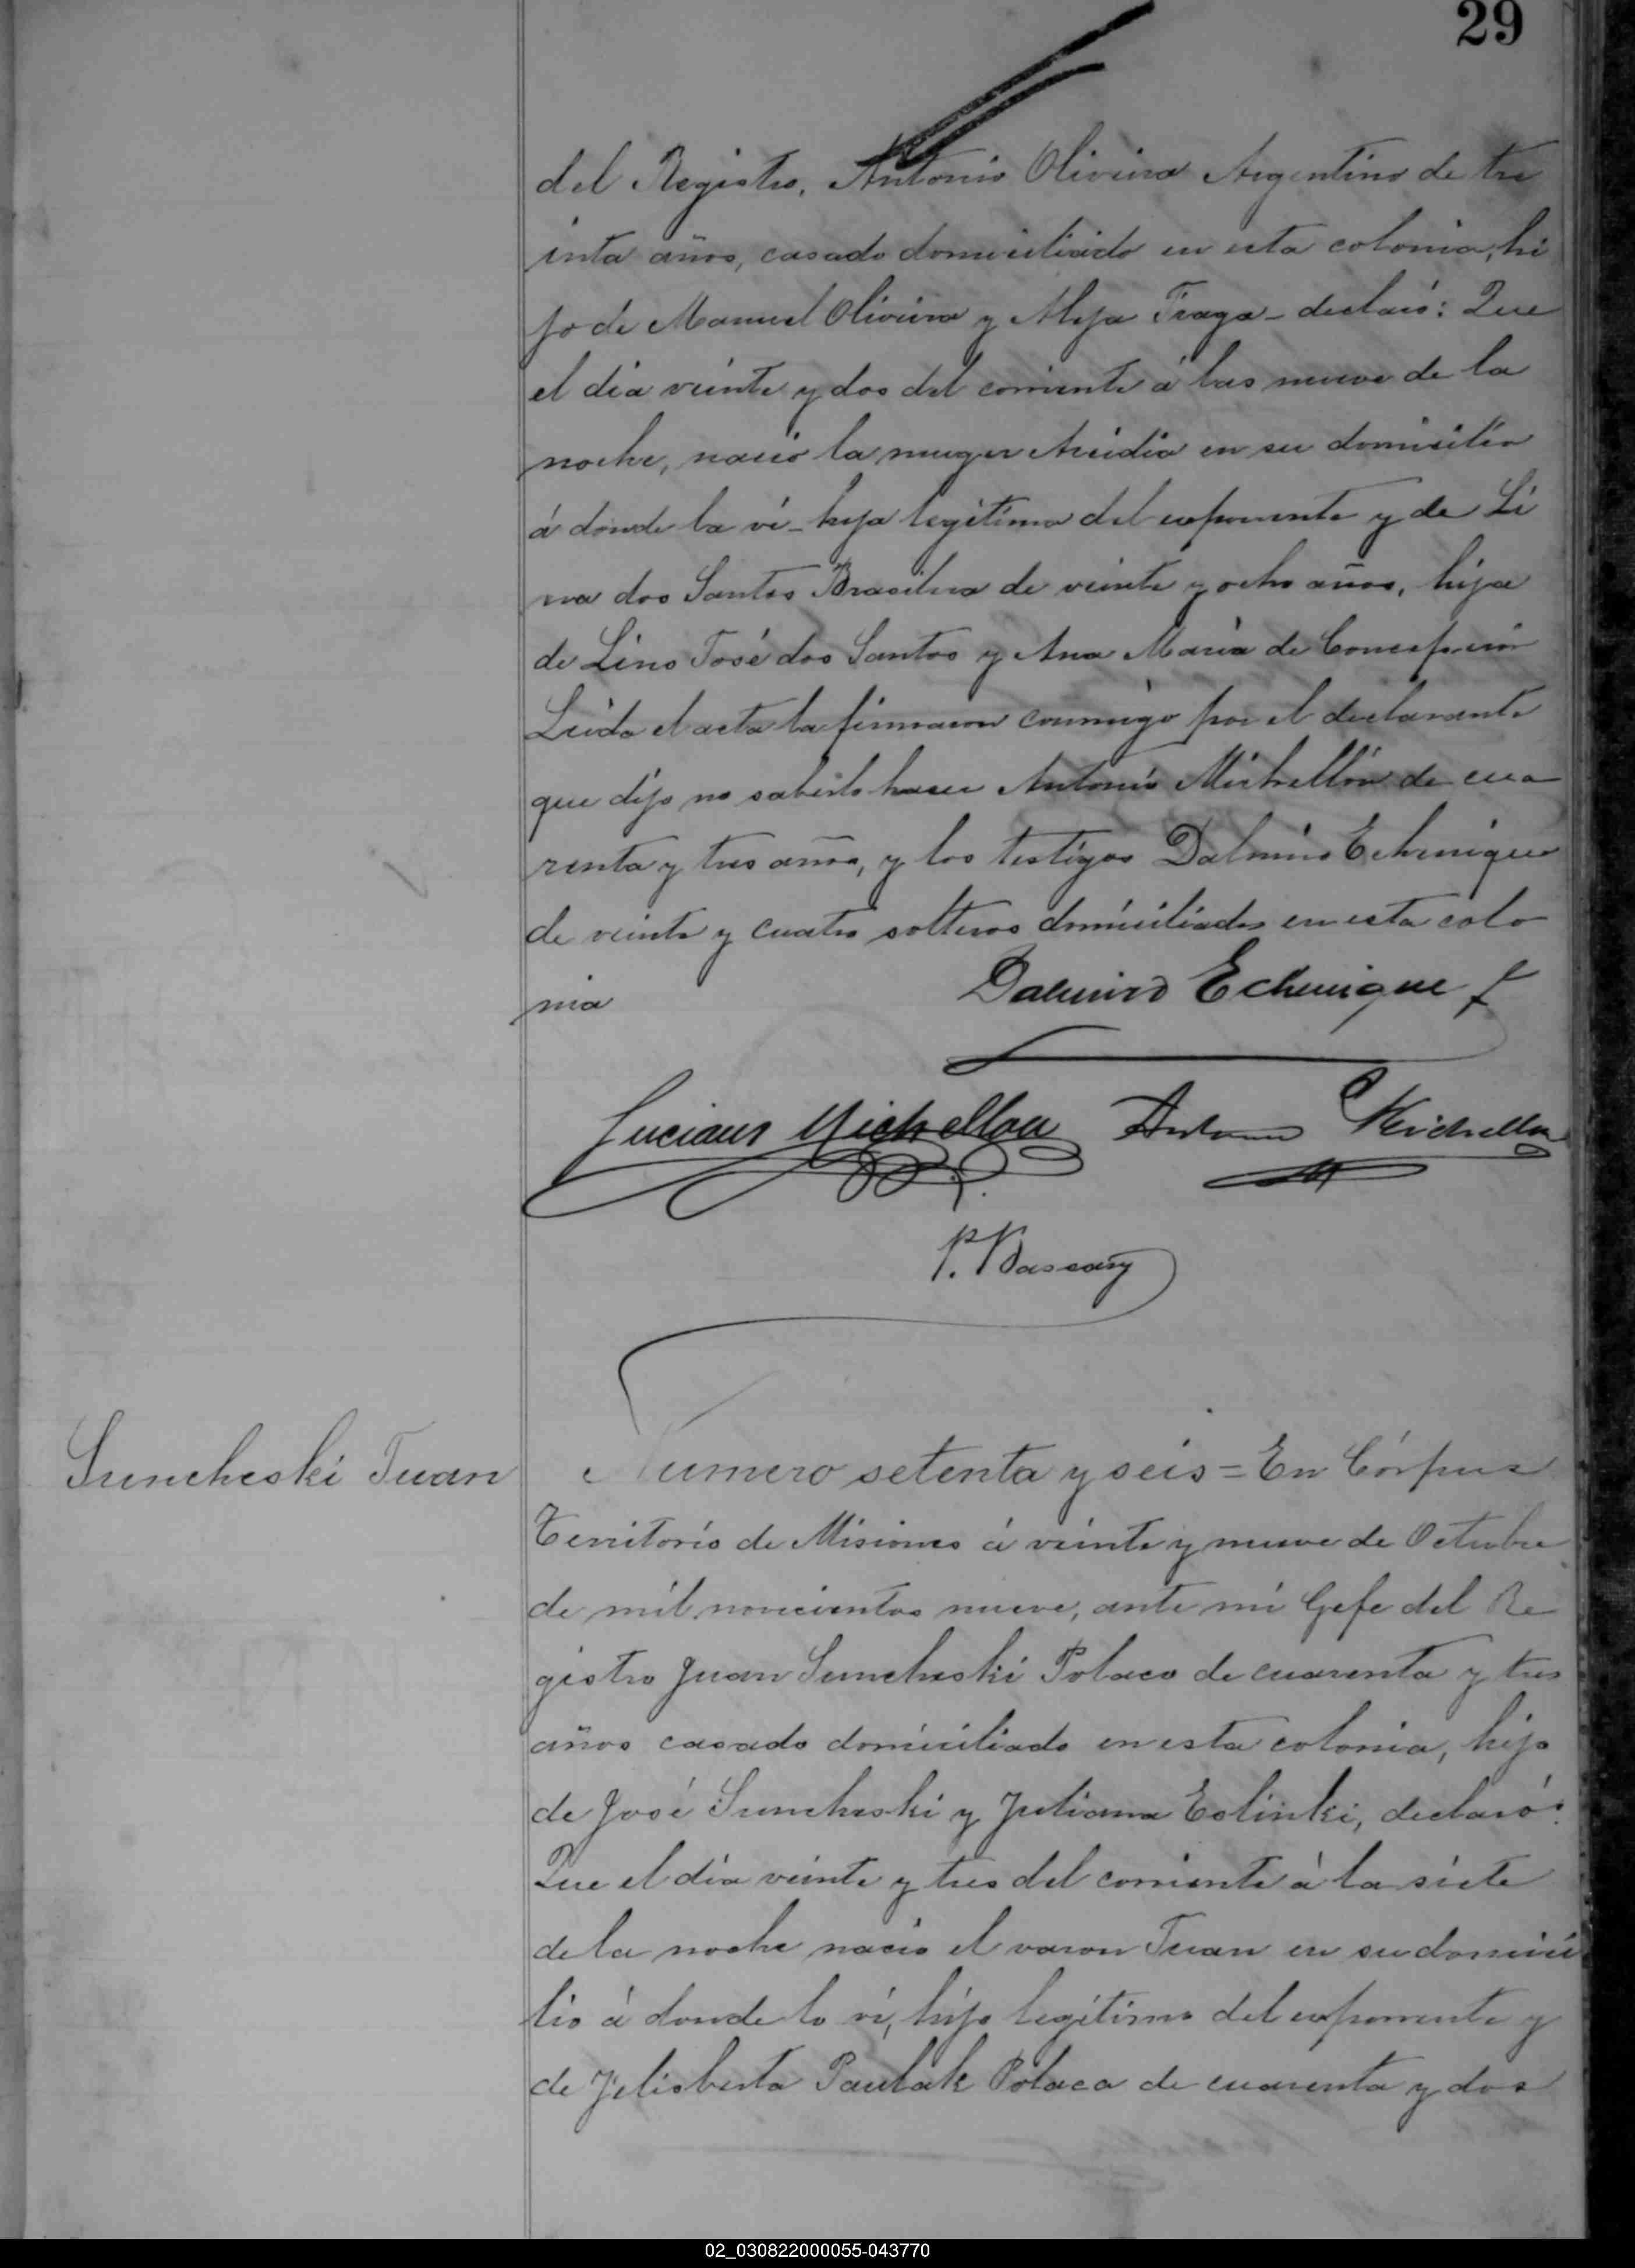 29
del Registro, Antonio Oliveira Argentino de tre
inta años, casado domiciliado en esta colonia, hi
jo de Manuel Oliveira y Aleja Fraga - declaró: Que
el dia veinte y dos del corriente á las nueve de la
noche, nació la muger Aridia en su domicilio
á donde la ví - hija legítima del exponente y de Li
na dos Santos Brasilera de veinte y ocho años, hija
de Lino José dos Santos y Ana María de Concepción
Leida el acta la firmaron conmigo por el declarante
que dijo no saberlo hacer Antonio Michellón de cua
renta y tres años, y los testigos Dalmiro Echenique
de veinte y cuatro solteros domiciliados en esta colo
nia
Dalmiro Echenique
Luciano Michellon Antonio Michellon
P.
Sumcheski Juan
Numero setenta y seis = En Córpus
Territorio de Misiones á veinte y nueve de Octubre
de mil novecientos nueve, ante mi Gefe del Re
gistro Juan Sumcheski Polaco de cuarenta y tres
años casado domiciliado en esta colonia, hijo
de José Sumcheski y Juliana Eslinki, declaró:
Que el día veinte y tres del corriente á la siete
de la noche nació el varon Juan en su domici
lio á donde lo ví, hijo legítimo del exponente y
de Jelisberta Paulak Polaca de cuarenta y dos
02_030822000055-043770